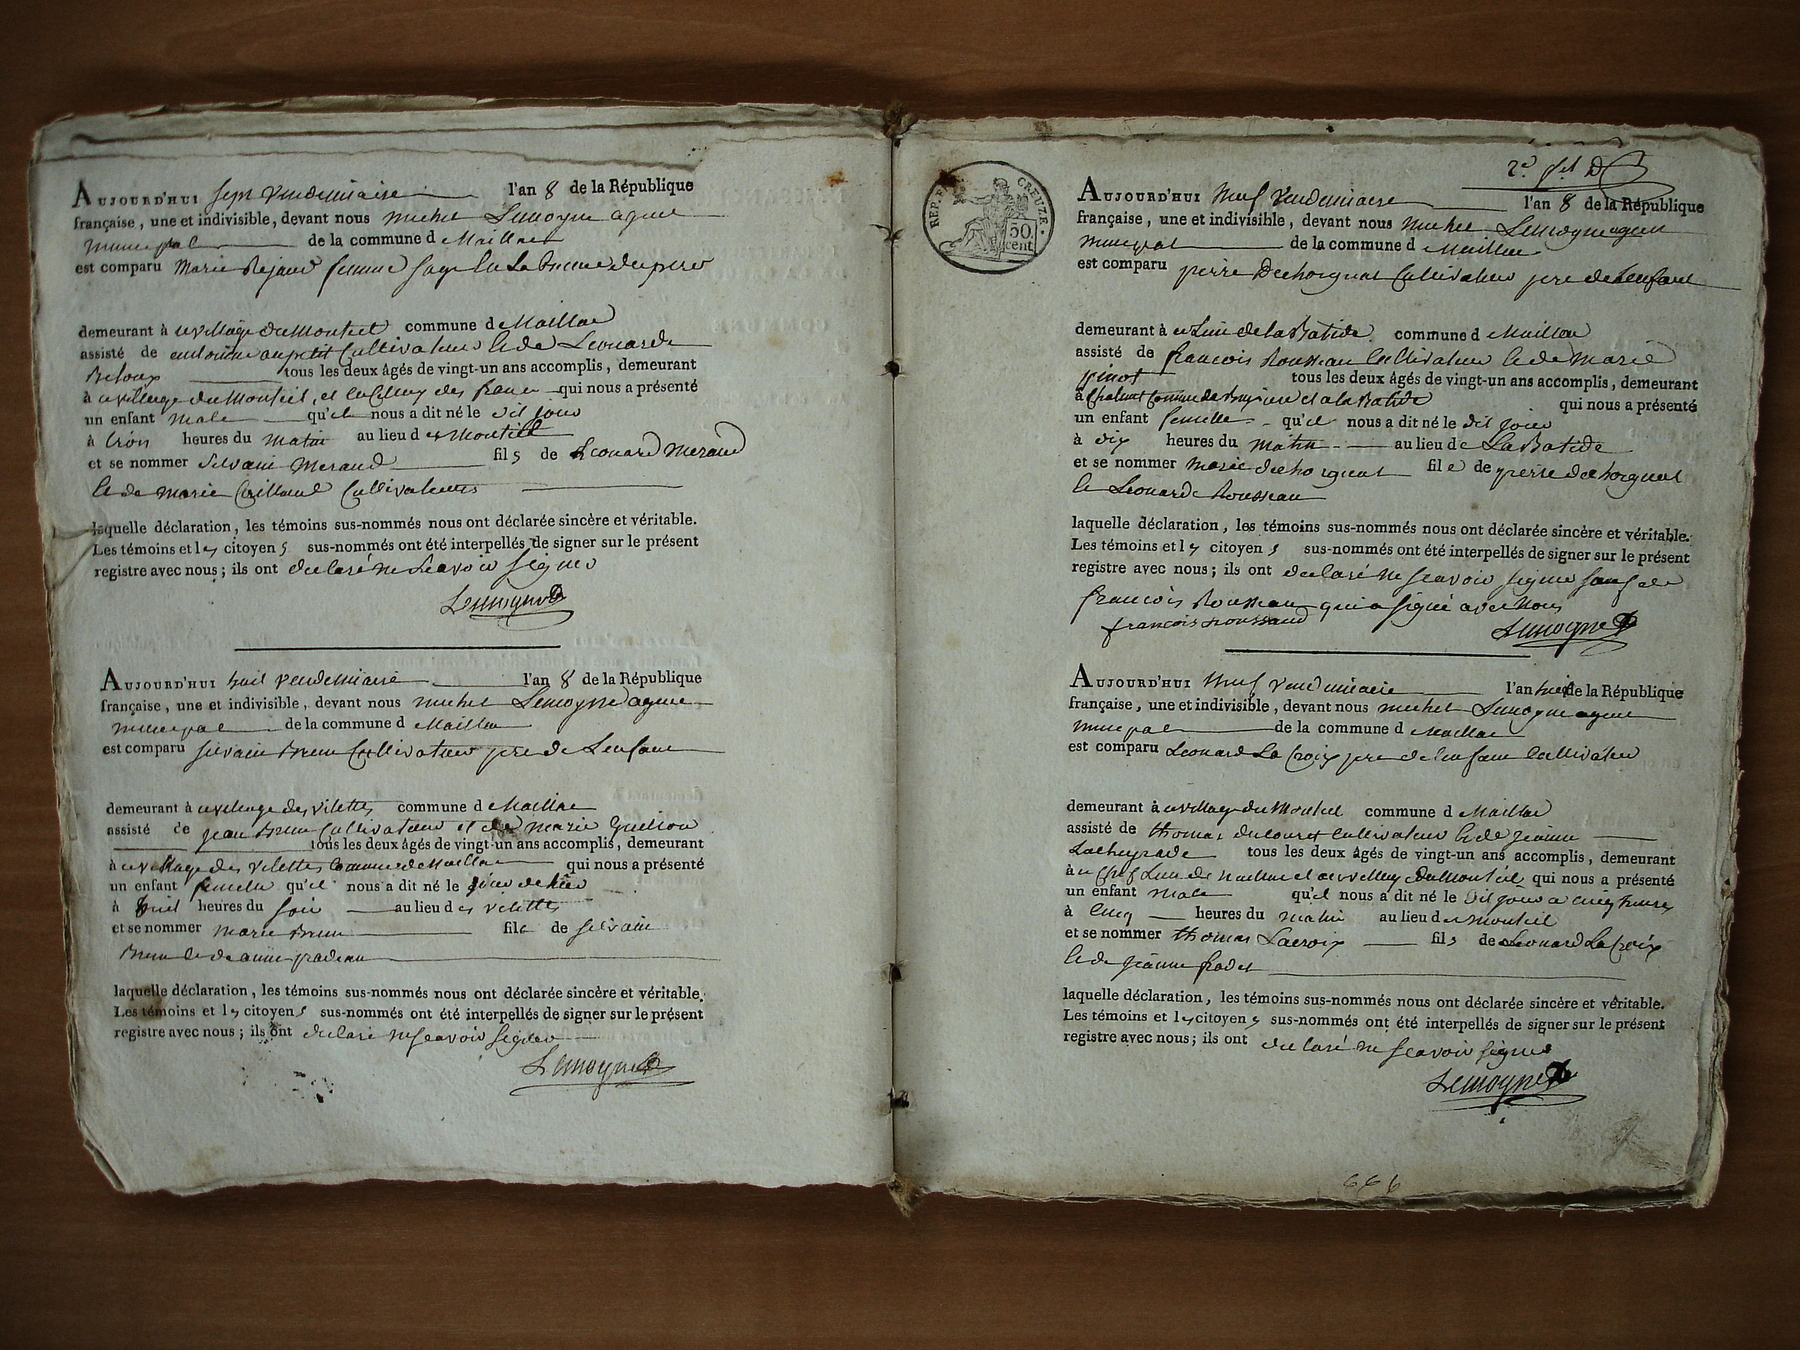 AUJOURD'HUI sept vendemiaire l'an 8 de la République
française, une et indivisible, devant nous michel Lemoyne agent
municipal de la commune d Maillac
est comparu Marie Rejaud femme sage en Labsence du pere
demeurant à au village du Montiel commune d Maillac
assisté de antoinne aupetit Cultivateur & de Leonarde
tous les deux âgés de vingt-un ans accomplis, demeurant
à village du Montiel, et qui nous a présenté
un enfant male qu'il nous a dit né le dit jour
à trois heures du matin au lieu d es Montiell
et se nommer Silvain Meraud fils de Leonard Meraud
& de marie Cultivateurs
laquelle déclaration, les témoins sus-nommés nous ont déclarée sincère et véritable.
Les témoins et les citoyens sus-nommés ont été interpellés de signer sur le présent
registre avec nous; ils ont declaré ne scavoir signer
Lemoyne
AUJOURD'HUI huit vendemiaire l'an 8 de la République
française, une et indivisible, devant nous michel Lemoyne agent
municipal de la commune d Maillac
est comparu silvain Brun Cultivateur pere de Lenfant
demeurant à au village des vilettes commune d Maillac
assisté de jean Brun Cultivateur et de marie
tous les deux âgés de vingt-un ans accomplis, demeurant
à au village des vilettes Commune de Maillac qui nous a présenté
un enfant femelle qu'il nous a dit né le jour de hier
à huit heures du soir au lieu d es vilettes
et se nommer marie Brun fille de silvain
Brun & de anne pradeau
laquelle déclaration, les témoins sus-nommés nous ont déclarée sincère et véritable.
Les témoins et les citoyens sus-nommés ont été interpellés de signer sur le présent
registre avec nous; ils ont declaré ne scavoir signer
Lemoyne
REP. FRA. CREUZE.
50
cent
AUJOURD'HUI neuf vendemiaire l'an 8 de la République
française, une et indivisible, devant nous michel Lemoyne agent
municipal de la commune d Maillac
est comparu pierre Dechorgnat Cultivateur pere de Lenfant
demeurant à au Lieu de la Batide commune d Maillac
assisté de francois Rousseau Cultivateur & de marie
pinot tous les deux âgés de vingt-un ans accomplis, demeurant
à Commune de et a la Batide qui nous a présenté
un enfant femelle qu'il nous a dit né le dit jour
à dix heures du matin au lieu de La Batide
et se nommer marie dechorgnat fille de pierre dechorgnat
& Leonarde Rousseau
laquelle déclaration, les témoins sus-nommés nous ont déclarée sincère et véritable.
Les témoins et les citoyens sus-nommés ont été interpellés de signer sur le présent
registre avec nous; ils ont declaré ne scavoir signer sauf le
francois Rousseau qui a signé avec Nous
francois roussaud
Lemoyne
AUJOURD'HUI neuf vendemiaire l'an huit de la République
française, une et indivisible, devant nous michel Lemoyne agent
municipal de la commune d Maillac
est comparu Leonard La Croix pere de lenfant Cultivateur
demeurant à au village du Montiel commune d Maillac
assisté de thomas Cultivateur & de jeanne
tous les deux âgés de vingt-un ans accomplis, demeurant
à au chef Lieu de Maillac et au village du Montiel qui nous a présenté
un enfant male qu'il nous a dit né le dit jour a cinq heures
à cinq heures du matin au lieu d es montiel
et se nommer thomas Lacroix fils de Leonard La Croix
& de jeanne
laquelle déclaration, les témoins sus-nommés nous ont déclarée sincère et véritable.
Les témoins et les citoyens sus-nommés ont été interpellés de signer sur le présent
registre avec nous; ils ont declaré ne scavoir signer
Lemoyne
666